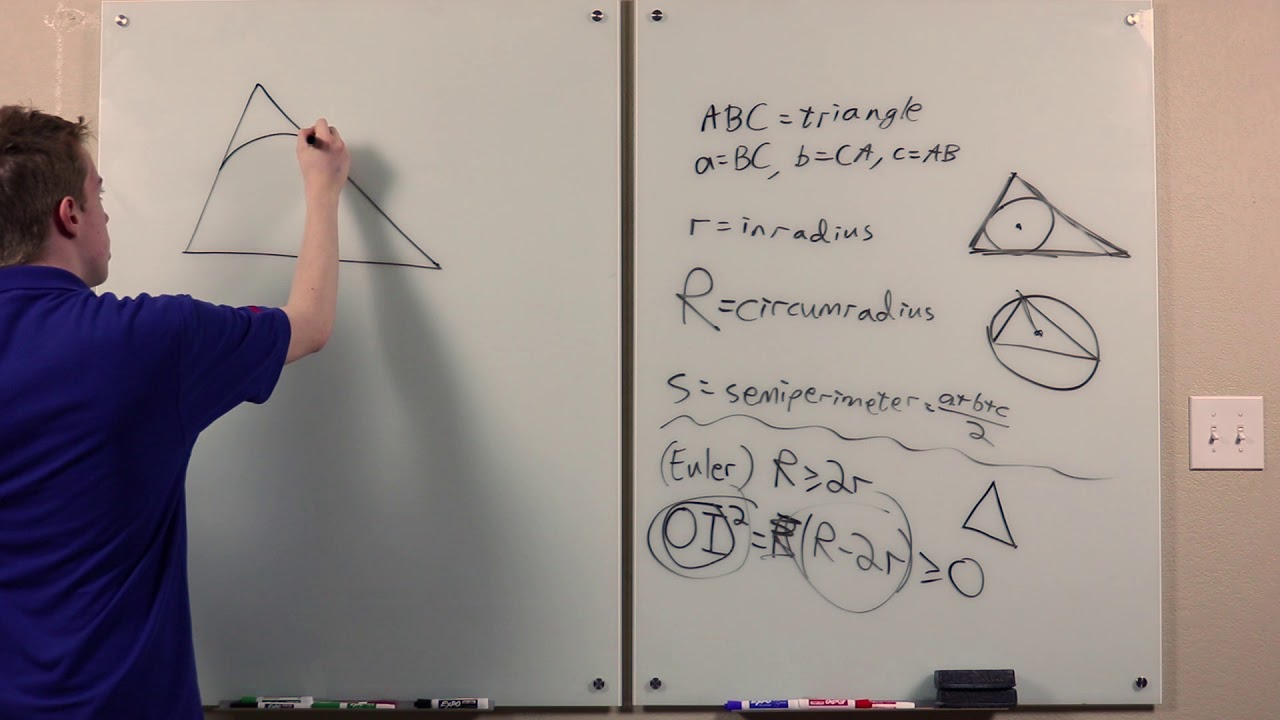 ABC = triangle
a=BC, b=CA, c=AB
r = inradius
R=circumradius
S = semiperimeter = a+b+c/2
(Euler) R≥2r
OI² = R(R-2r) ≥ 0
EXPO
EXPO